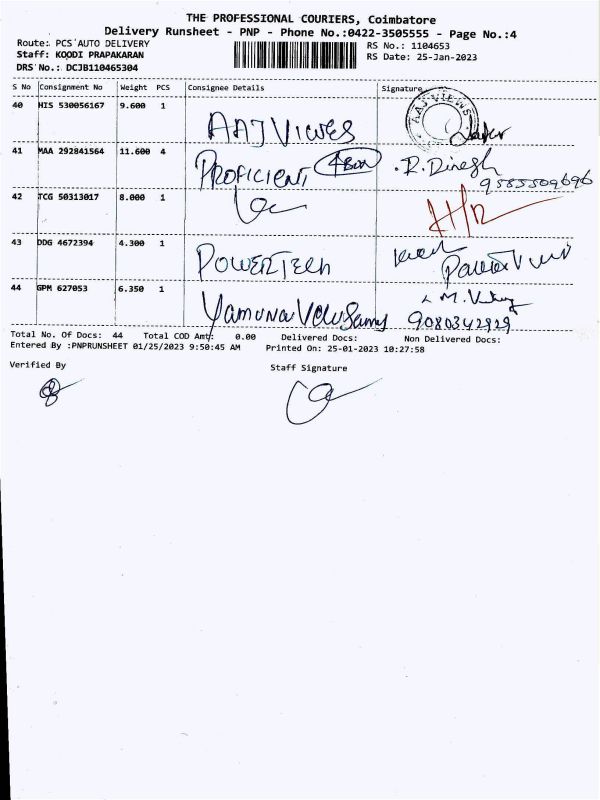 THE PROFESSIONAL COURIERS, Coimbatore
Delivery Runsheet - PNP - Phone No.:0422-3505555 - Page No.:4
Route: PCS AUTO DELIVERY
RS No.: 1104653
Staff: KOODI PRAPAKARAN
RS Date: 25-Jan-2023
DRS No.: DCJB110465304
S No Consignment No Weight PCS Consignee Details Signature
40 HIS 530056167 9.600 1
AAJ VIEWS
AAJ VIEWS
41 MAA 292841564 11.600 4
PROFICIENT 4 Box R. Dinesh
9585509696
42 TCG 50313017 8.000 1
43 DDG 4672394 4.300 1
POWERTECH
44 GPM 627053 6.350 1
Yamuna Velusamy 9080342929
Total No. Of Docs: 44 Total COD Amt: 0.00 Delivered Docs: Non Delivered Docs:
Entered By :PNPRUNSHEET 01/25/2023 9:50:45 AM Printed On: 25-01-2023 10:27:58
Verified By
Staff Signature